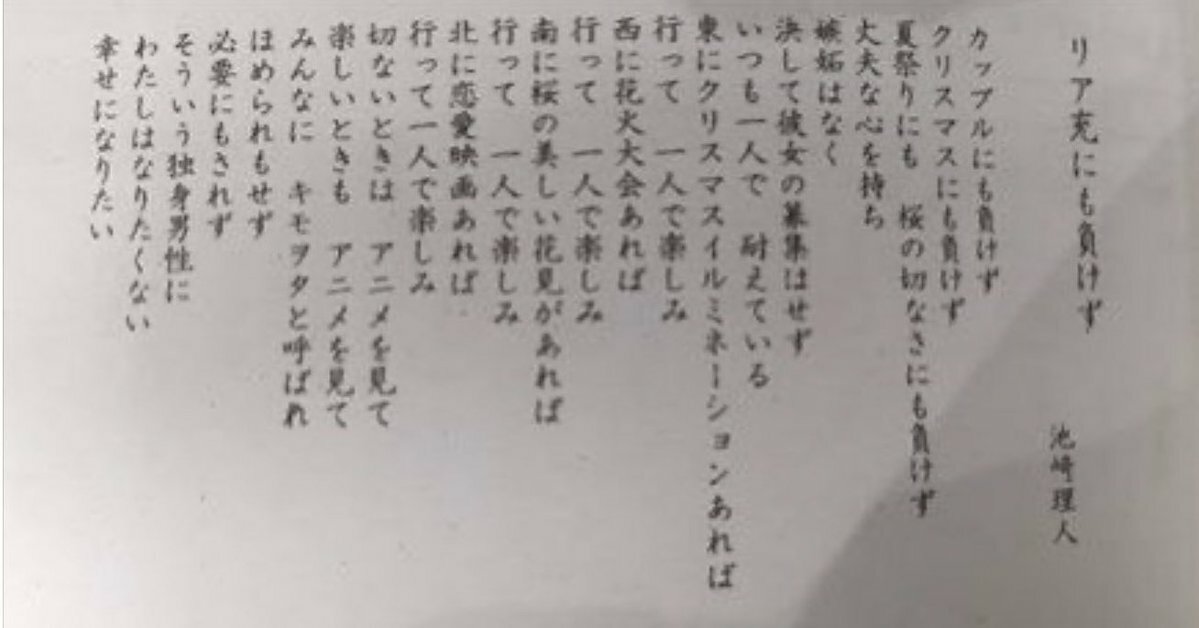 リア充にも負けず
池崎理人
カップルにも負けず
クリスマスにも負けず
夏祭りにも　桜の切なさにも負けず
丈夫な心を持ち
嫉妬はなく
決して彼女の募集はせず
いつも一人で　耐えている
東にクリスマスイルミネーションあれば
行って　一人で楽しみ
西に花火大会あれば
行って　一人で楽しみ
南に桜の美しい花見があれば
行って　一人で楽しみ
北に恋愛映画あれば
行って一人で楽しみ
切ないときは　アニメを見て
楽しいときも　アニメを見て
みんなに　キモヲタと呼ばれ
ほめられもせず
必要にもされず
そういう独身男性に
わたしはなりたくない
幸せになりたい